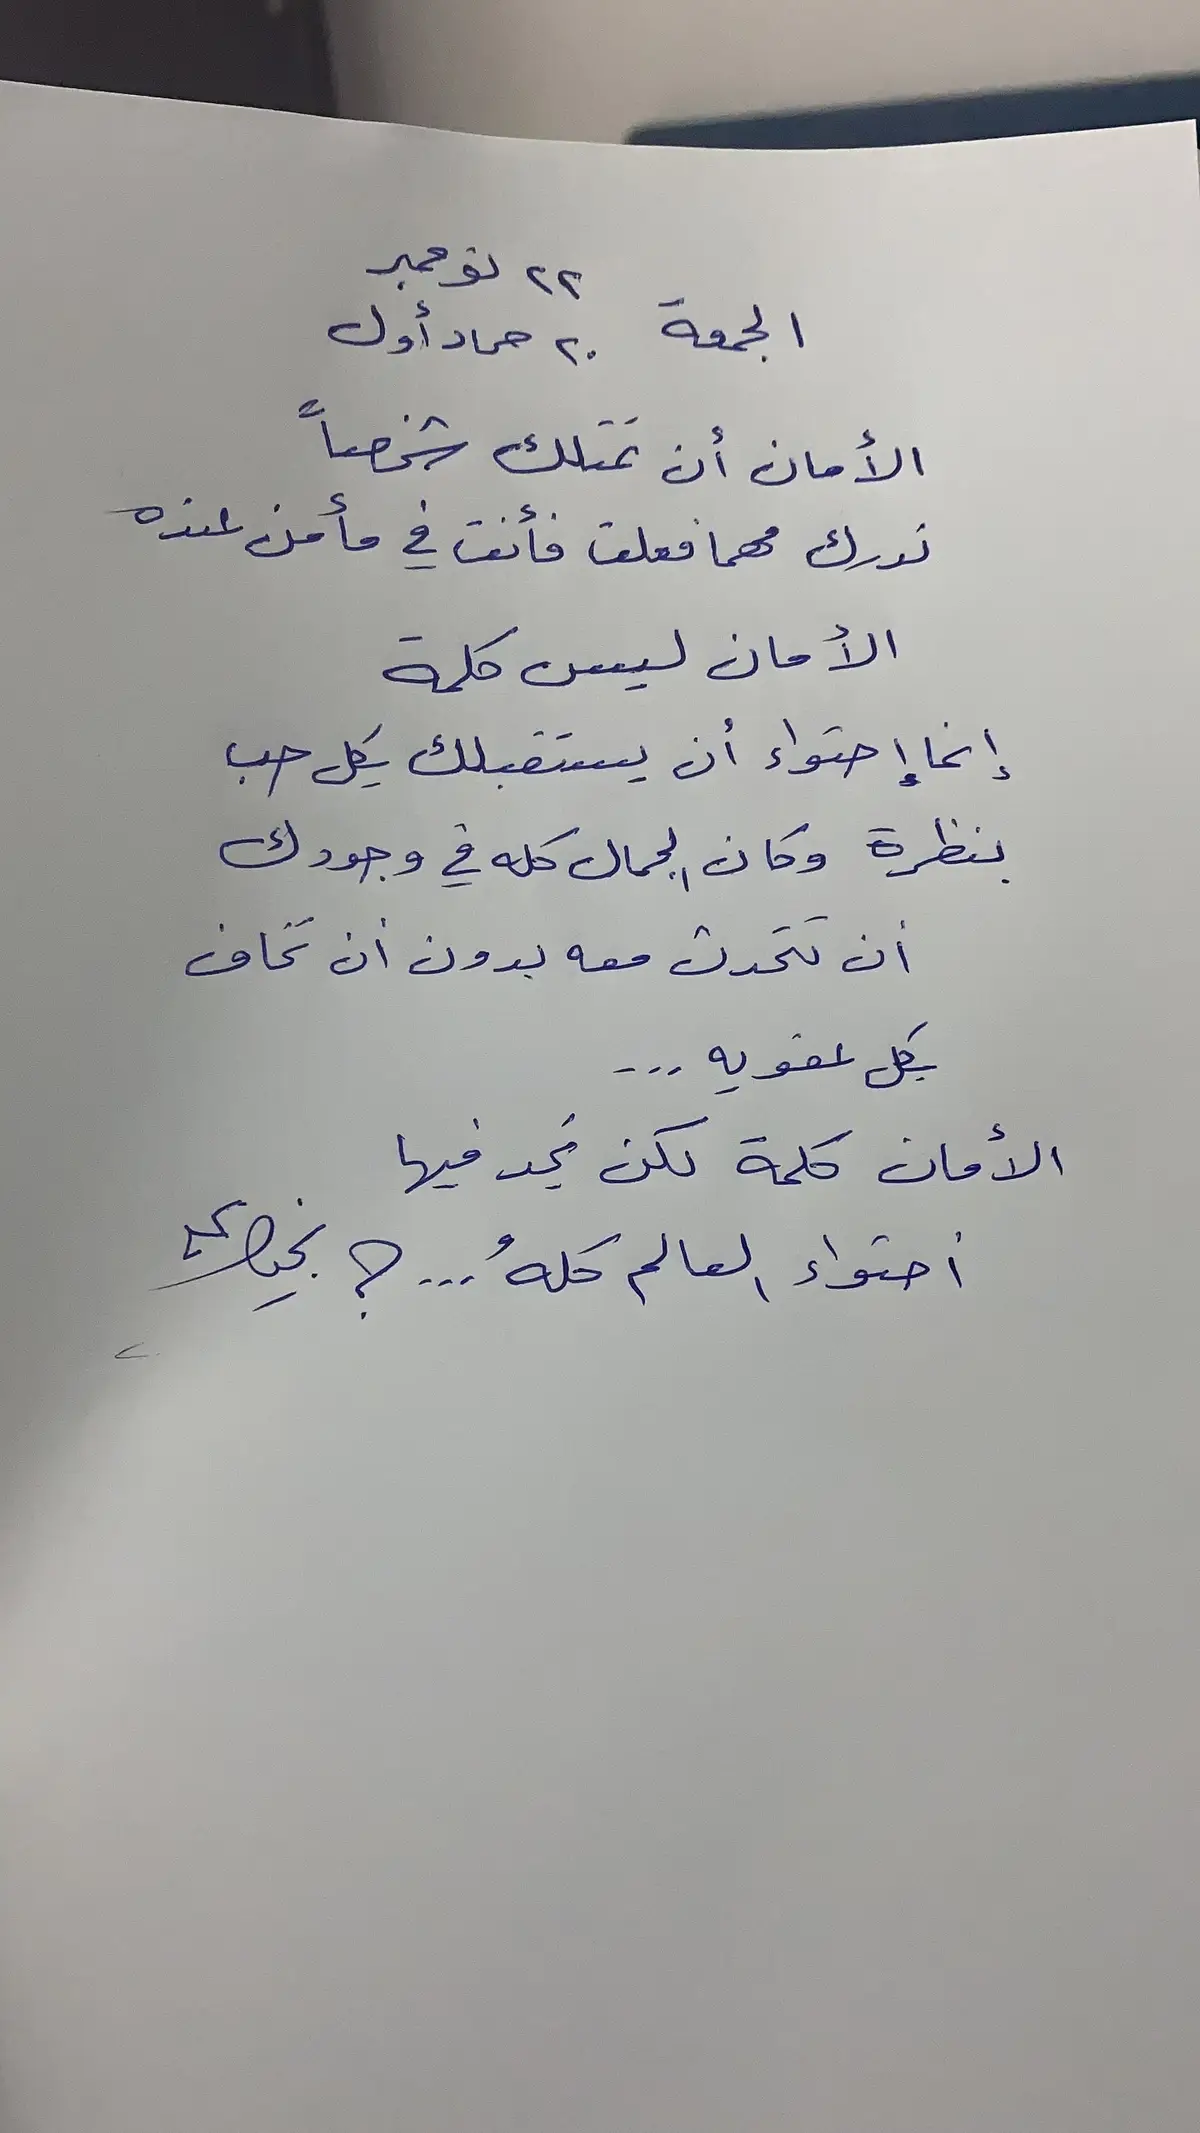 ٢٢ نوفمبر
الجمعة ٢٠ جماد أول
الأمان أن تمتلك شخصاً
تدرك مهما فعلت فأنت في مأمن عنده
الأمان ليس كلمة
إنما إحتواء أن يستقبلك بكل حب
بنظرة وكان الجمال كله في وجودك
أن تتحدث معه بدون أن تخاف
بكل عفويه ...
الأمان كلمة لكن تجد فيها
أحتواء العالم كلهُ ...؟